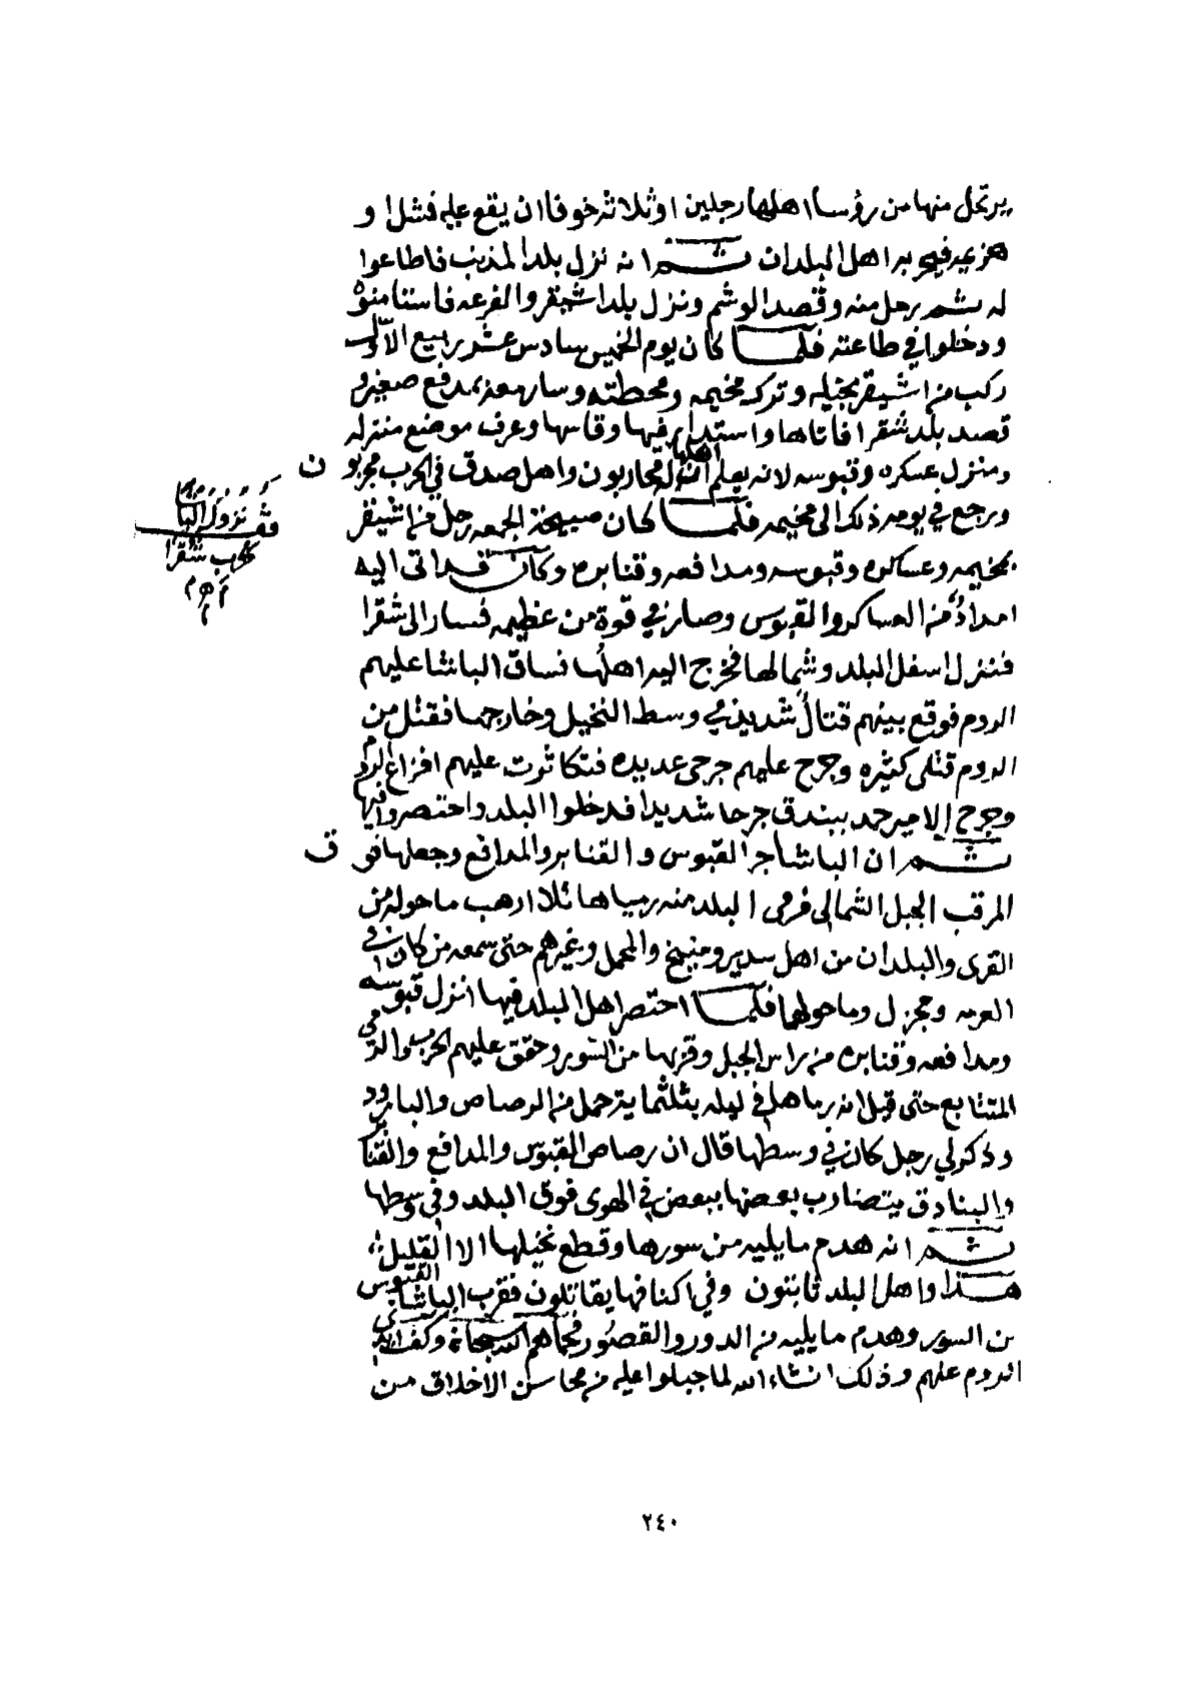 يرتحل منها من رؤسا اهلها رجلين او ثلاثة خوفا ان يقع عليه فشل او
هزيمه فيحر به اهل البلدان ثم انه نزل بلد المذنب فاطاعوا
له ثم رحل منه وقصد الوشم ونزل بلد اشيقر والفرعه فاستامنوا
ودخلوا في طاعته فلما كان يوم الخميس سادس عشر ربيع الاول
ركب من اشيقر بخيله وترك مخيمه ومحطته وسار معه بمدفع صغير و
قصد بلد شقرا فاتاها واستدار فيها وقاسها وعرف موضع منزله
ومنزل عسكره وقبوسه لانه يعلم ان اهلها محاربون واهل صدق في الحرب مجربون
ورجع في يومه ذلك الى مخيمه فلما كان صبيحة الجمعه رحل من اشيقر
بمخيمه وعساكره وقبوسه ومدافعه وقنابره وكان قد اتى اليه
امداد من العساكر والقبوس وصار في قوة من عظيمه فسار الى شقرا
فنزل اسفل البلد وشمالها فخرج اليه اهلها فساق الباشا عليهم
الروم فوقع بينهم قتال شديد في وسط النخيل وخارجها فقتل من
الروم قتلى كثيره وجرح عليهم جرحى عديده فتكاثرت عليهم افزاع الروم
وجرح الامير حمد ببندق جرحا شديدا فدخلوا البلد واحتصروا فيها
ثم ان الباشا جر القبوس والقنابر والمدافع وجعلها فوق
المرقب الجبل الشمالي فرمى البلد منه رميا هائلا ارهب ما حوله من
القرى والبلدان من اهل سدير ومنيخ والمحمل وغيرهم حتى سمعه من كان في
العرمه ومجزل وما حولها فلما احتصر اهل البلد فيها انزل قبوسه
ومدافعه وقنابره من راس الجبل وقربها من السور وحقق عليهم الحرب والرمي
المتتابع حتى قيل انه رماها في ليله بثلثمايه حمل من الرصاص والبارود
وذكر لي رجل كان في وسطها قال ان رصاص القبوس والمدافع والقنابر
والبنادق يتضارب بعضها ببعض في الهوى فوق البلد وفي وسطها
ثم انه هدم ما يليه من سورها وقطع نخيلها الا القليل
هذا واهل البلد ثابتون وفي اكنافها يقاتلون فقرب الباشا القبوس
من السور وهدم ما يليه من الدور والقصور فحماهم الله سبحانه وكف ايدي
الروم عنهم وذلك انشاء الله لما جبلوا عليه من محاسن الاخلاق من
نزول الباشا
حرب شقرا
٢٤٠